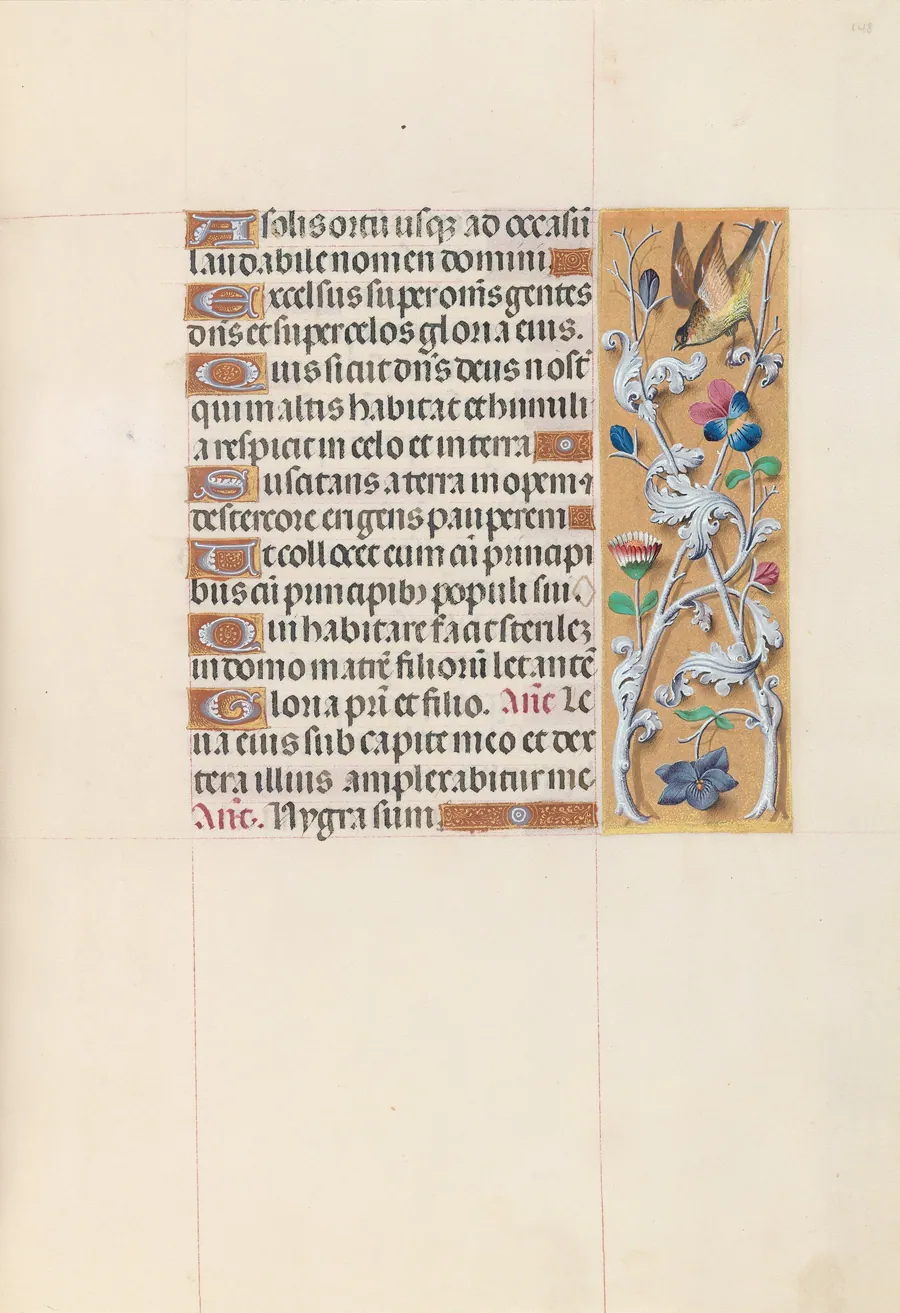 148
A solis ortu usqꝫ ad occasū
laudabile nomen domini
Excelsus super om̄s gentes
dn̄s et super celos gloria eius.
Quis sicut dn̄s deus nost̄
qui in altis habitat et humili
a respicit in celo et in terra
Suscitans a terra inopem ⁊
de stercore erigens pauperem
Ut collocet eum cū principi
bus cū principibꝫ populi sui.
Qui habitare facit sterilē
in domo matrē filiorū letantē
Gloria pr̄i et filio. Ān̄t Le
ua eius sub capite meo et dex
tera illius amplexabitur me
Ān̄t. Nygra sum